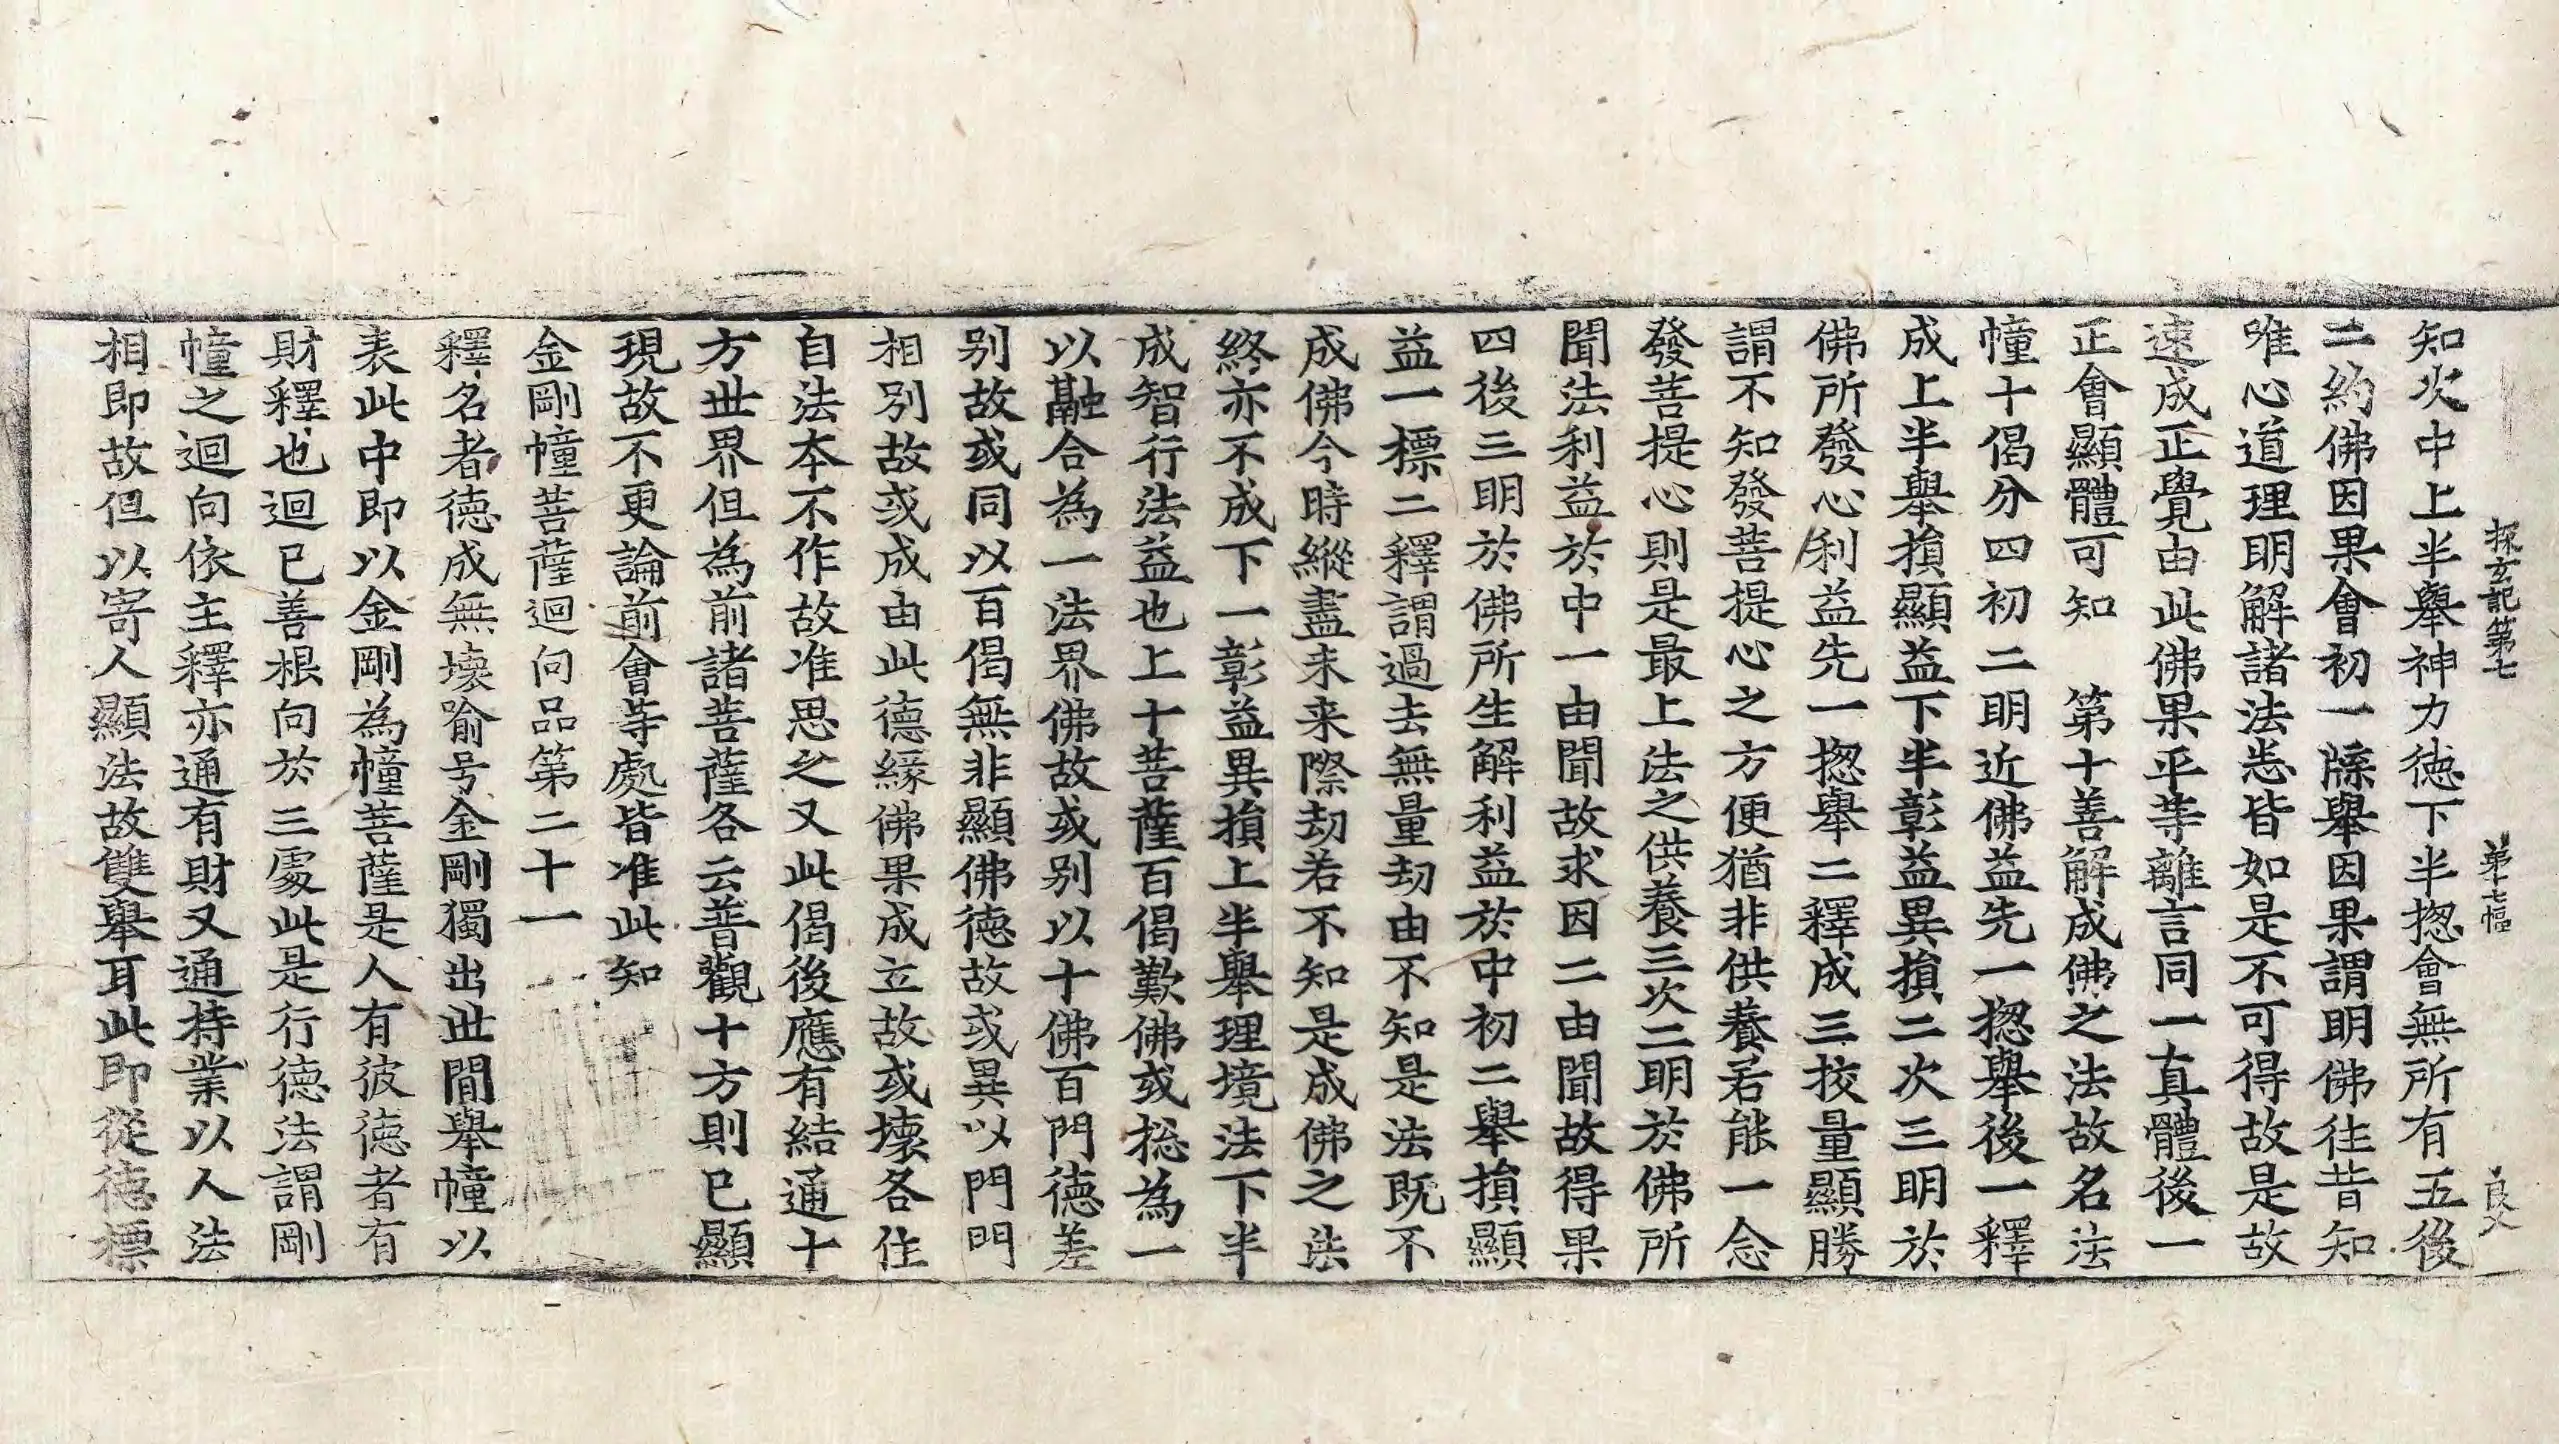 探玄記第七　第十七幅　良火
知次中上半舉神力德下半揔會無所有五後
二約佛因果會初一牒舉因果謂明佛往昔知
唯心道理明解諸法悉皆如是不可得故是故
速成正覺由此佛果平等離言同一真體後一
正會顯體可知　第十善解成佛之法故名法
幢十偈分四初二明近佛益先一揔舉後一釋
成上半舉損顯益下半彰益異損二次三明於
佛所發心利益先一揔舉二釋成三挍量顯勝
謂不知發菩提心之方便猶非供養若能一念
發菩提心則是最上法之供養三次二明於佛所
聞法利益於中一由聞故求因二由聞故得果
四後三明於佛所生解利益於中初二舉損顯
益一標二釋謂過去無量劫由不知是法既不
成佛今時縱盡未来際劫若不知是成佛之法
終亦不成下一彰益異損上半舉理境法下半
成智行法益也上十菩薩百偈歎佛或揔為一
以融合為一法界佛故或别以十佛百門德差
别故或同以百偈無非顯佛德故或異以門門
相别故或成由此德緣佛果成立故或壞各住
自法本不作故准思之又此偈後應有結通十
方世界但為前諸菩薩各云普觀十方則已顯
現故不更論前會等處皆准此知
金剛幢菩薩迴向品第二十一
釋名者德成無壞喻号金剛獨出世間舉幢以
表此中即以金剛為幢菩薩是人有彼德者有
財釋也迴已善根向於三處此是行德法謂剛
幢之迴向依主釋亦通有財又通持業以人法
相即故但以寄人顯法故雙舉耳此即從德標